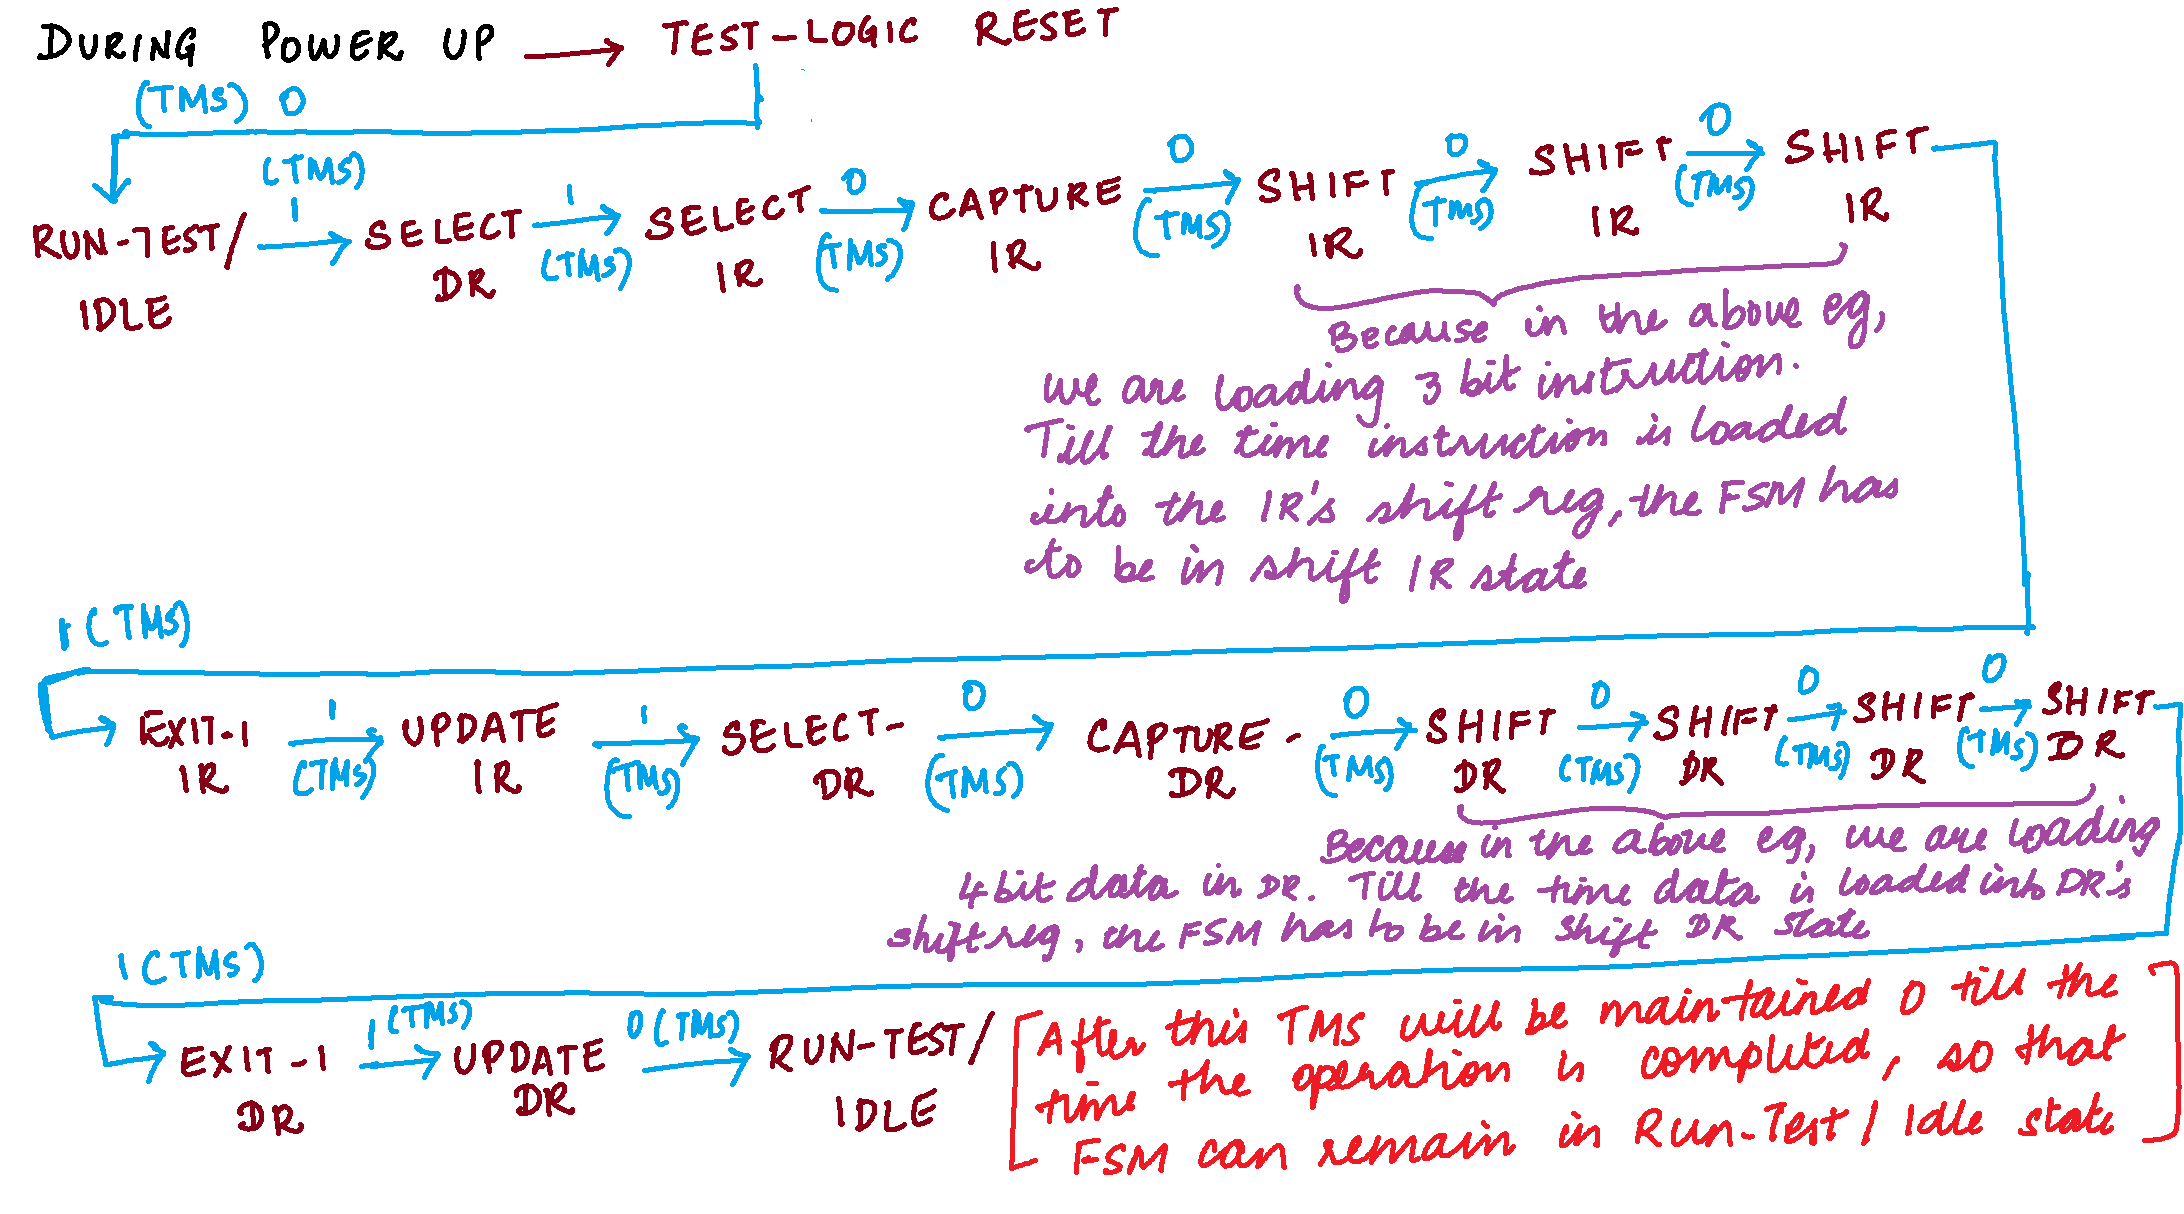 DURING POWER UP → TEST-LOGIC RESET
(TMS) 0
(TMS)
1 1 0 0 0 0
RUN-TEST/ → SELECT → SELECT → CAPTURE → SHIFT → SHIFT → SHIFT
IDLE DR IR IR IR IR IR
(TMS) (TMS) (TMS) (TMS) (TMS)
Because in the above eg,
we are loading 3 bit instruction.
Till the time instruction is loaded
into the IR's shift reg, the FSM has
to be in shift IR state
1 (TMS)
1 1 0 0 0 0 0
EXIT-1 → UPDATE → SELECT- → CAPTURE- → SHIFT → SHIFT → SHIFT → SHIFT
IR IR DR DR DR DR DR DR
(TMS) (TMS) (TMS) (TMS) (TMS) (TMS) (TMS)
Because in the above eg, we are loading
4 bit data in DR. Till the time data is loaded into DR's
shift reg, the FSM has to be in shift DR state
1 (TMS)
1 (TMS) 0 (TMS)
EXIT-1 → UPDATE → RUN-TEST/
DR DR IDLE
[After this TMS will be maintained 0 till the
time the operation is completed, so that
FSM can remain in Run-Test/Idle state]